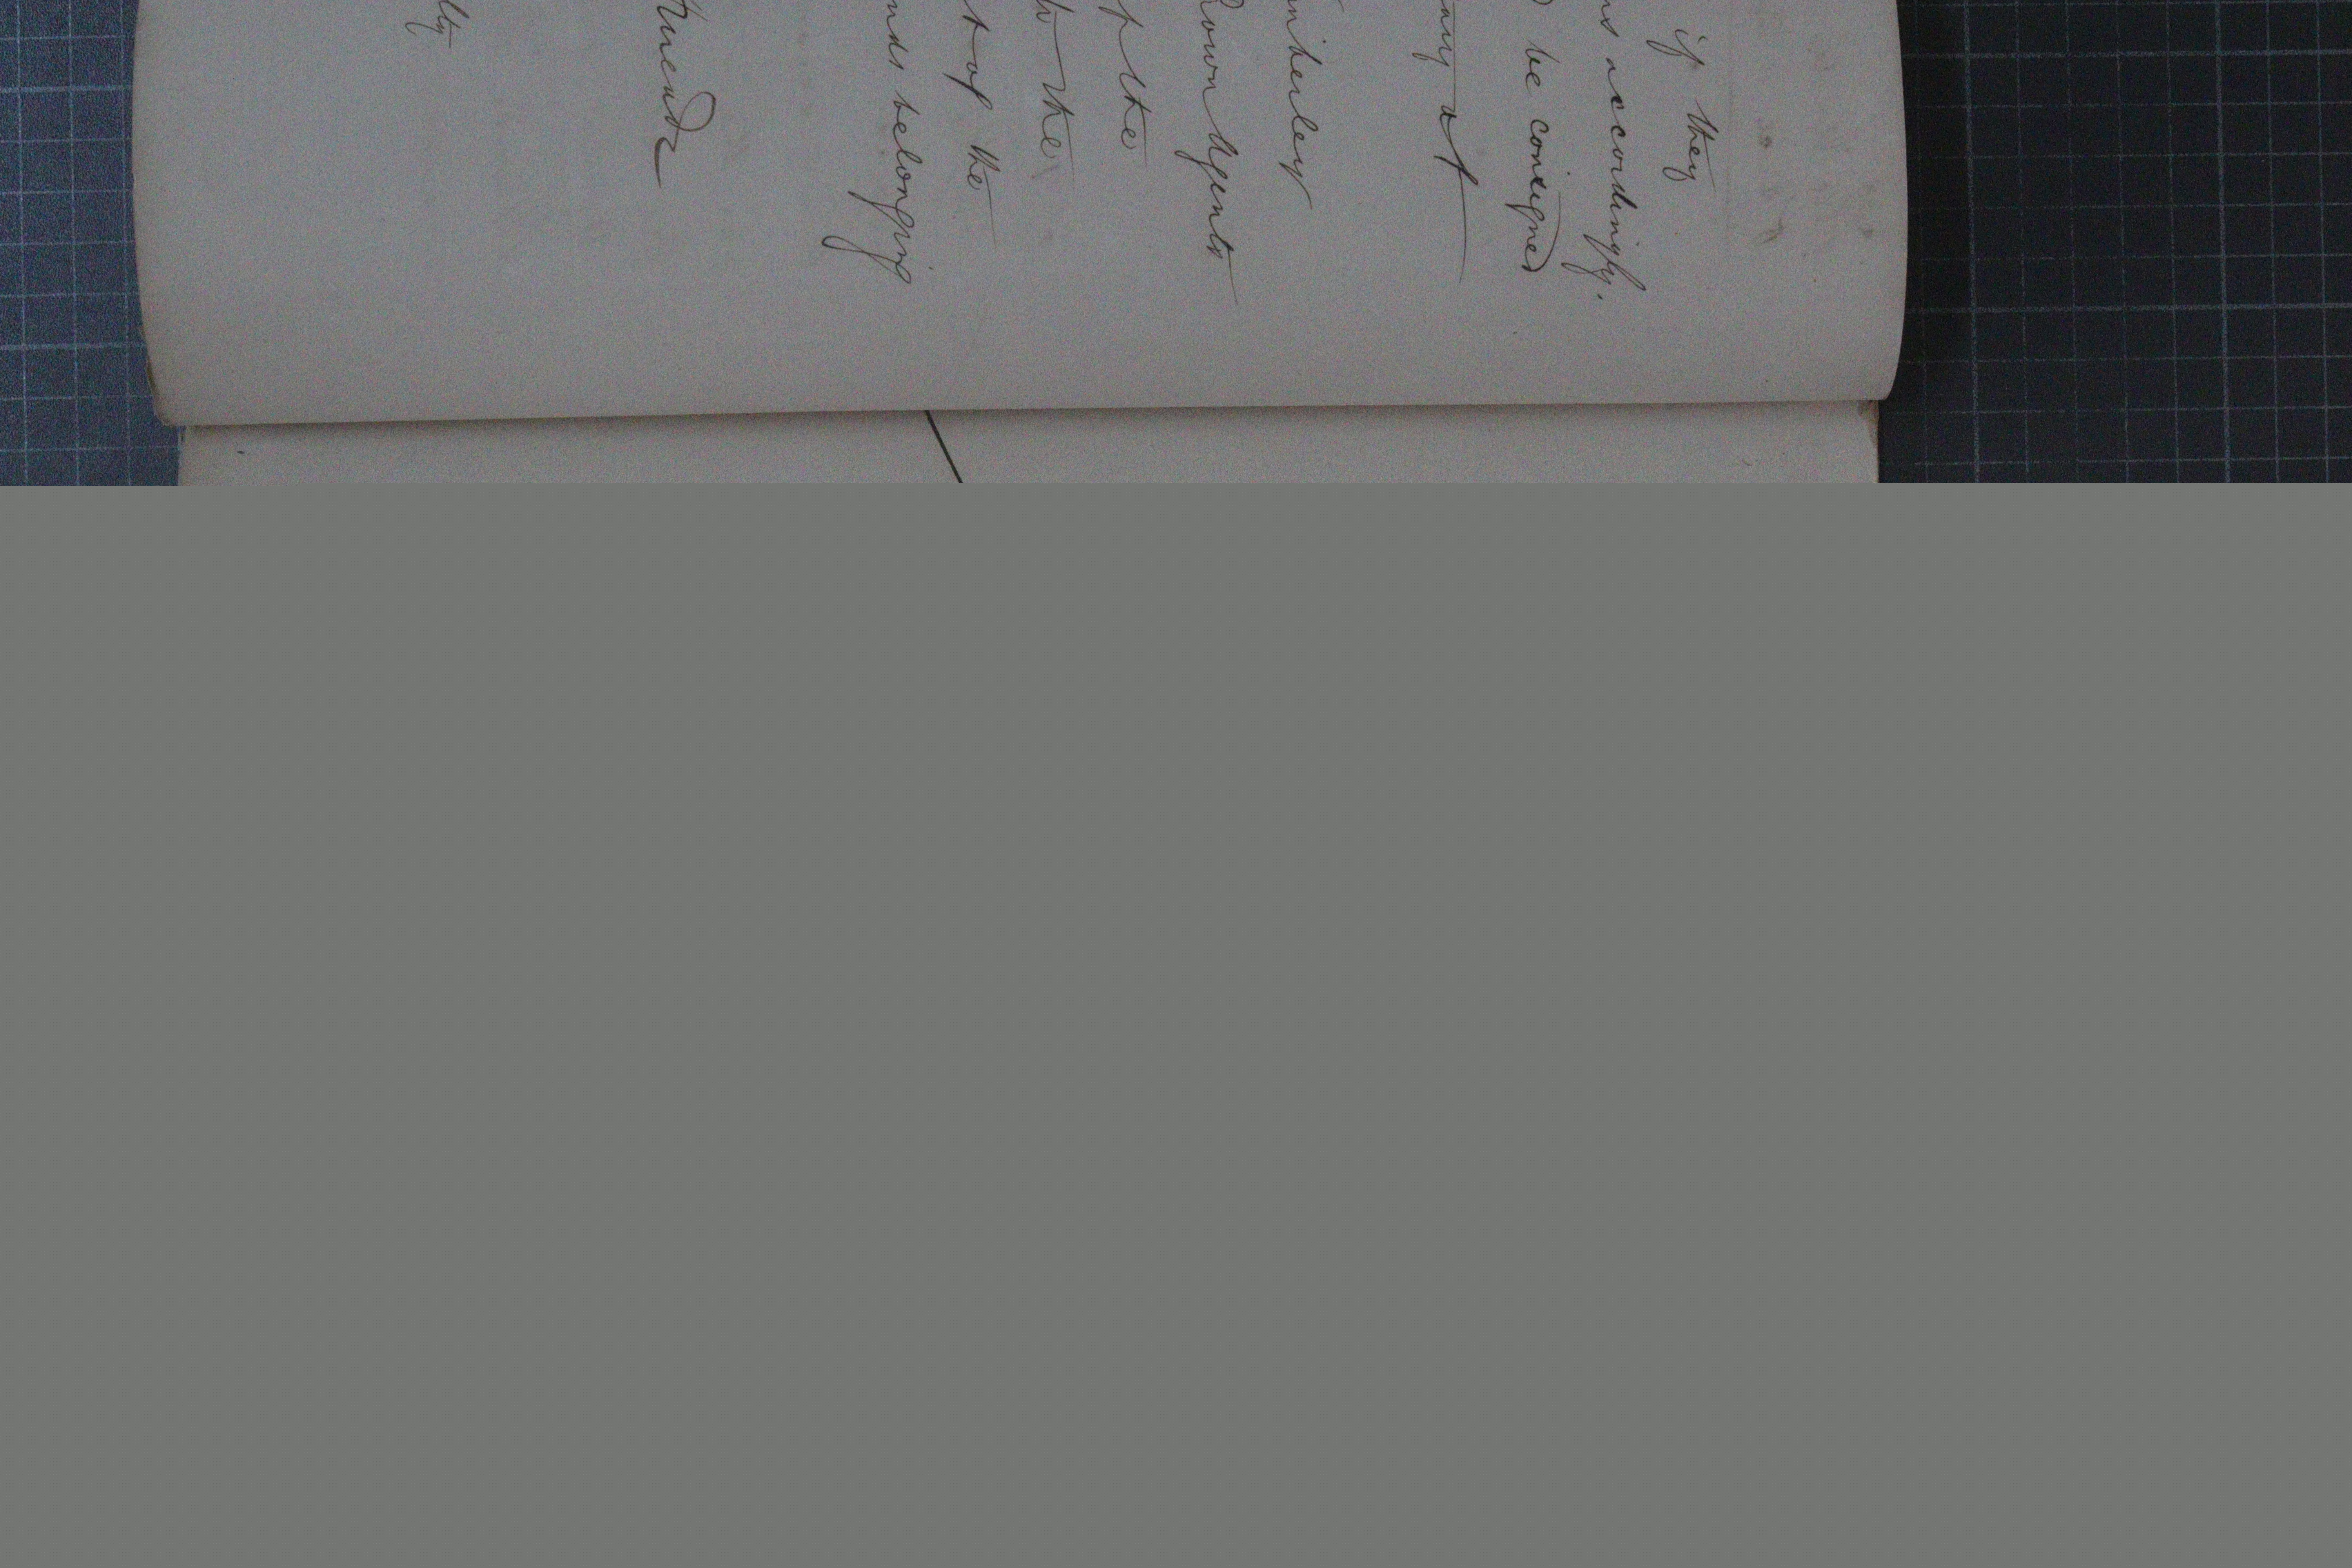 if they
ns accordingly.
be consigned
any at
mberley
Crown Agents
of the
to the
t of the
nds belonging
lty